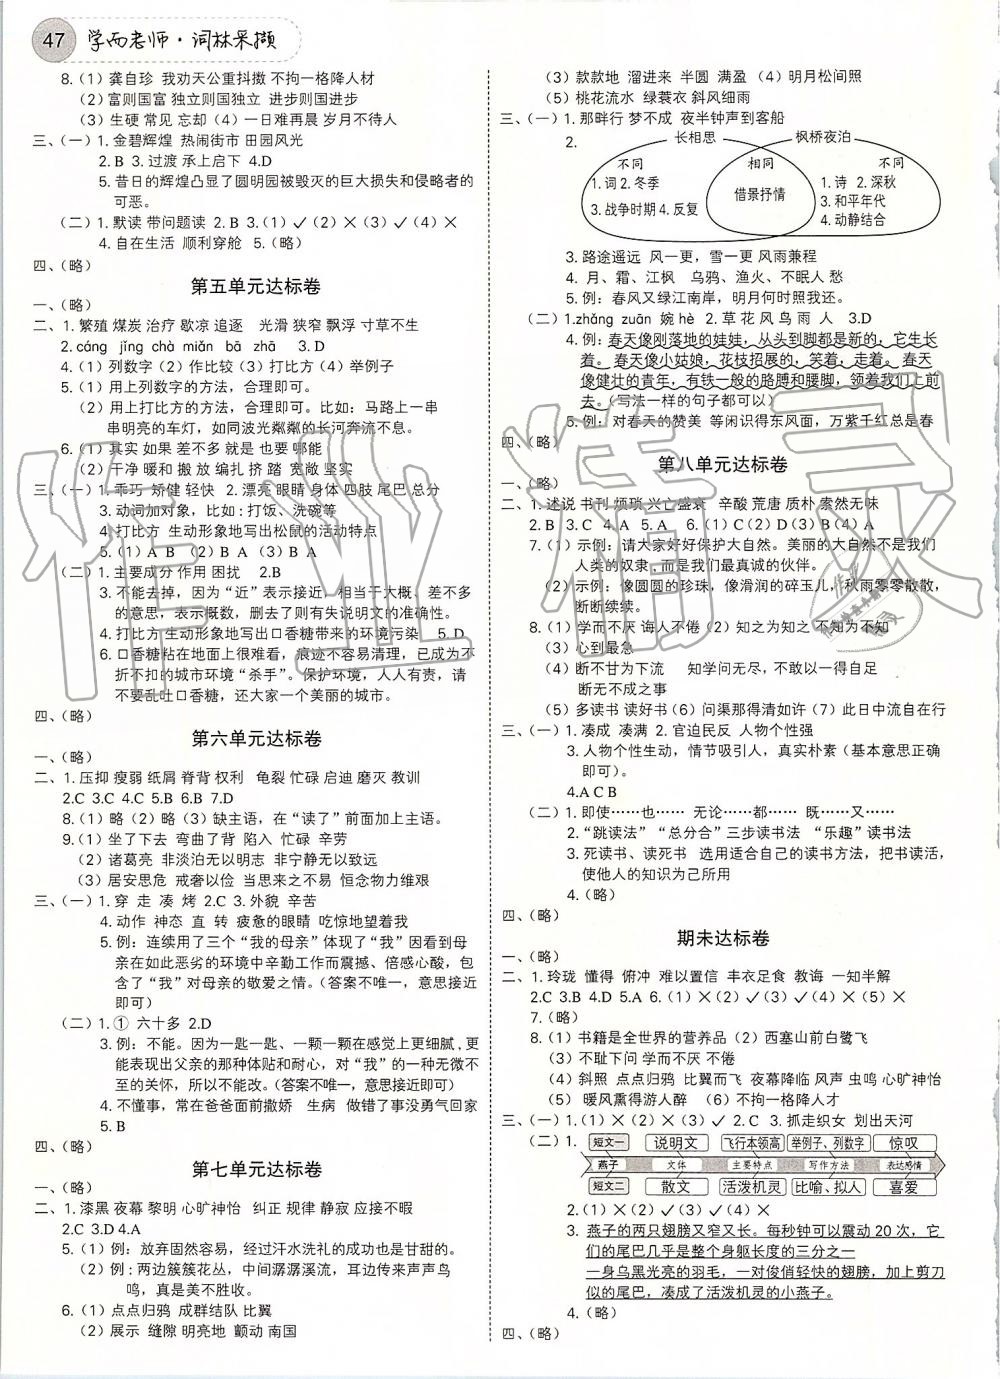 47 学而老师·词林采撷
8.(1)龚自珍 我劝天公重抖擞 不拘一格降人材
(2)富则国富 独立则国独立 进步则国进步
(3)生硬 常见 忘却(4)一日难再晨 岁月不待人
三、(一)1.金碧辉煌 热闹街市 田园风光
2.B 3.过渡 承上启下 4.D
5.昔日的辉煌凸显了圆明园被毁灭的巨大损失和侵略者的
可恶。
(二)1.默读 带问题读 2.B 3.(1)✓(2)×(3)✓(4)×
4.自在生活 顺利穿舱 5.(略)
四、(略)
第五单元达标卷
一、(略)
二、1.繁殖 煤炭 治疗 歇凉 追逐 光滑 狭窄 飘浮 寸草不生
2.cáng jīng chà miǎn bā zhā 3.D
4.(1)列数字(2)作比较(3)打比方(4)举例子
5.(1)用上列数字的方法，合理即可。
(2)用上打比方的方法，合理即可。比如：马路上一串
串明亮的车灯，如同波光粼粼的长河奔流不息。
6.(1)其实 如果 差不多 就是 也要 哪能
(2)干净 暖和 搬 放 编扎 挤 踏 宽敞 坚实
三、(一)1.乖巧 矫健 轻快 2.漂亮 眼睛 身体 四肢 尾巴 总分
3.动词加对象，比如：打饭、洗碗等
4.打比方 生动形象地写出松鼠的活动特点
5.(1)A B (2)B (3)A B
(二)1.主要成分 作用 困扰 2.B
3.不能去掉，因为“近”表示接近，相当于大概、差不多
的意思，表示概数，删去了则有失说明文的准确性。
4.打比方 生动形象地写出口香糖带来的环境污染 5.D
6.口香糖粘在地面上很难看，痕迹不容易清理，已成为不
折不扣的城市环境“杀手”。保护环境，人人有责，请
不要乱吐口香糖，还大家一个美丽的城市。
四、(略)
第六单元达标卷
一、(略)
二、1.压抑 瘦弱 纸屑 脊背 权利 龟裂 忙碌 启迪 磨灭 教训
2.C 3.C 4.C 5.B 6.B 7.D
8.(1)略(2)略(3)缺主语，在“读了”前面加上主语。
9.(1)坐了下去 弯曲了背 陷入 忙碌 辛劳
(2)诸葛亮 非淡泊无以明志 非宁静无以致远
(3)居安思危 戒奢以俭 当思来之不易 恒念物力维艰
三、(一)1.穿 走 凑 烤 2.C 3.外貌 辛苦
4.动作 神态 直 转 疲惫的眼睛 吃惊地望着我
5.例：连续用了三个“我的母亲”体现了“我”因看到母
亲在如此恶劣的环境中辛勤工作而震撼、倍感心酸，包
含了“我”对母亲的敬爱之情。(答案不唯一，意思接近
即可)
(二)1.① 六十多 2.D
3.例：不能。因为一匙一匙、一颗一颗在感觉上更细腻，更
能表现出父亲的那种体贴和耐心，对“我”的一种无微不
至的关怀，所以不能改。(答案不唯一，意思接近即可)
4.不懂事，常在爸爸面前撒娇 生病 做错了事没勇气回家
5.B
四、(略)
第七单元达标卷
一、(略)
二、1.漆黑 夜幕 黎明 心旷神怡 纠正 规律 静寂 应接不暇
2.C 3.D 4.A
5.(1)例：放弃固然容易，经过汗水洗礼的成功也是甘甜的。
(2)例：两边簇簇花丛，中间潺潺溪流，耳边传来声声鸟
鸣，真是美不胜收。
6.(1)点点归鸦 成群结队 比翼
(2)展示 缝隙 明亮地 颤动 南国
(3)款款地 溜进来 半圆 满盈(4)明月松间照
(5)桃花流水 绿蓑衣 斜风细雨
三、(一)1.那畔行 梦不成 夜半钟声到客船
2. 长相思 枫桥夜泊
不同 相同 不同
1.词 2.冬季
3.战争时期 4.反复
借景抒情
1.诗 2.深秋
3.和平年代
4.动静结合
3.路途遥远 风一更，雪一更 风雨兼程
4.月、霜、江枫 乌鸦、渔火、不眠人 愁
5.例：春风又绿江南岸，明月何时照我还。
(二)1.zhǎng zuān 婉 hè 2.草 花 风 鸟 雨 人 3.D
4.例：春天像刚落地的娃娃，从头到脚都是新的，它生长
着。春天像小姑娘，花枝招展的，笑着，走着。春天
像健壮的青年，有铁一般的胳膊和腰脚，领着我们上前
去。(写法一样的句子都可以)
5.例：对春天的赞美 等闲识得东风面，万紫千红总是春
四、(略)
第八单元达标卷
一、(略)
二、1.述说 书刊 烦琐 兴亡盛衰 辛酸 荒唐 质朴 索然无味
2.B 3.C 4.A 5.A 6.(1)C(2)D(3)B(4)A
7.(1)示例：请大家好好保护大自然。美丽的大自然不是我们
人类的奴隶，而是我们最真诚的伙伴。
(2)示例：像圆圆的珍珠，像滑润的碎玉儿，秋雨零零散散，
断断续续。
8.(1)学而不厌 诲人不倦(2)知之为知之 不知为不知
(3)心到最急
(4)断不甘为下流 知学问无尽，不敢以一得自足
断无不成之事
(5)多读书 读好书(6)问渠那得清如许(7)此日中流自在行
三、(一)1.凑成 凑满 2.官迫民反 人物个性强
3.人物个性生动，情节吸引人，真实朴素(基本意思正确
即可)。
4.A C B
(二)1.即使……也…… 无论……都…… 既……又……
2.“跳读法”“总分合”三步读书法 “乐趣”读书法
3.死读书、读死书 选用适合自己的读书方法，把书读活，
使他人的知识为己所用
4.(略)
四、(略)
期未达标卷
一、(略)
二、1.玲珑 懂得 俯冲 难以置信 丰衣足食 教诲 一知半解
2.C 3.B 4.D 5.A 6.(1)×(2)✓(3)✓(4)×(5)×
7.(略)
8.(1)书籍是全世界的营养品(2)西塞山前白鹭飞
(3)不耻下问 学而不厌 不倦
(4)斜照 点点归鸦 比翼而飞 夜幕降临 风声 虫鸣 心旷神怡
(5)暖风熏得游人醉 (6)不拘一格降人才
三、(一)1.(1)×(2)×(3)✓ 2.C 3.抓走织女 划出天河
(二)1. 短文一 说明文 飞行本领高 举例子、列数字 惊叹
燕子 文体 主要特点 写作方法 表达感情
短文二 散文 活泼机灵 比喻、拟人 喜爱
2.(1)✓(2)×(3)✓(4)×
3.燕子的两只翅膀又窄又长。每秒钟可以震动20次，它
们的尾巴几乎是整个身躯长度的三分之一
一身乌黑光亮的羽毛，一对俊俏轻快的翅膀，加上剪刀
似的尾巴，凑成了活泼机灵的小燕子。
4.(略)
四、(略)
作业精灵